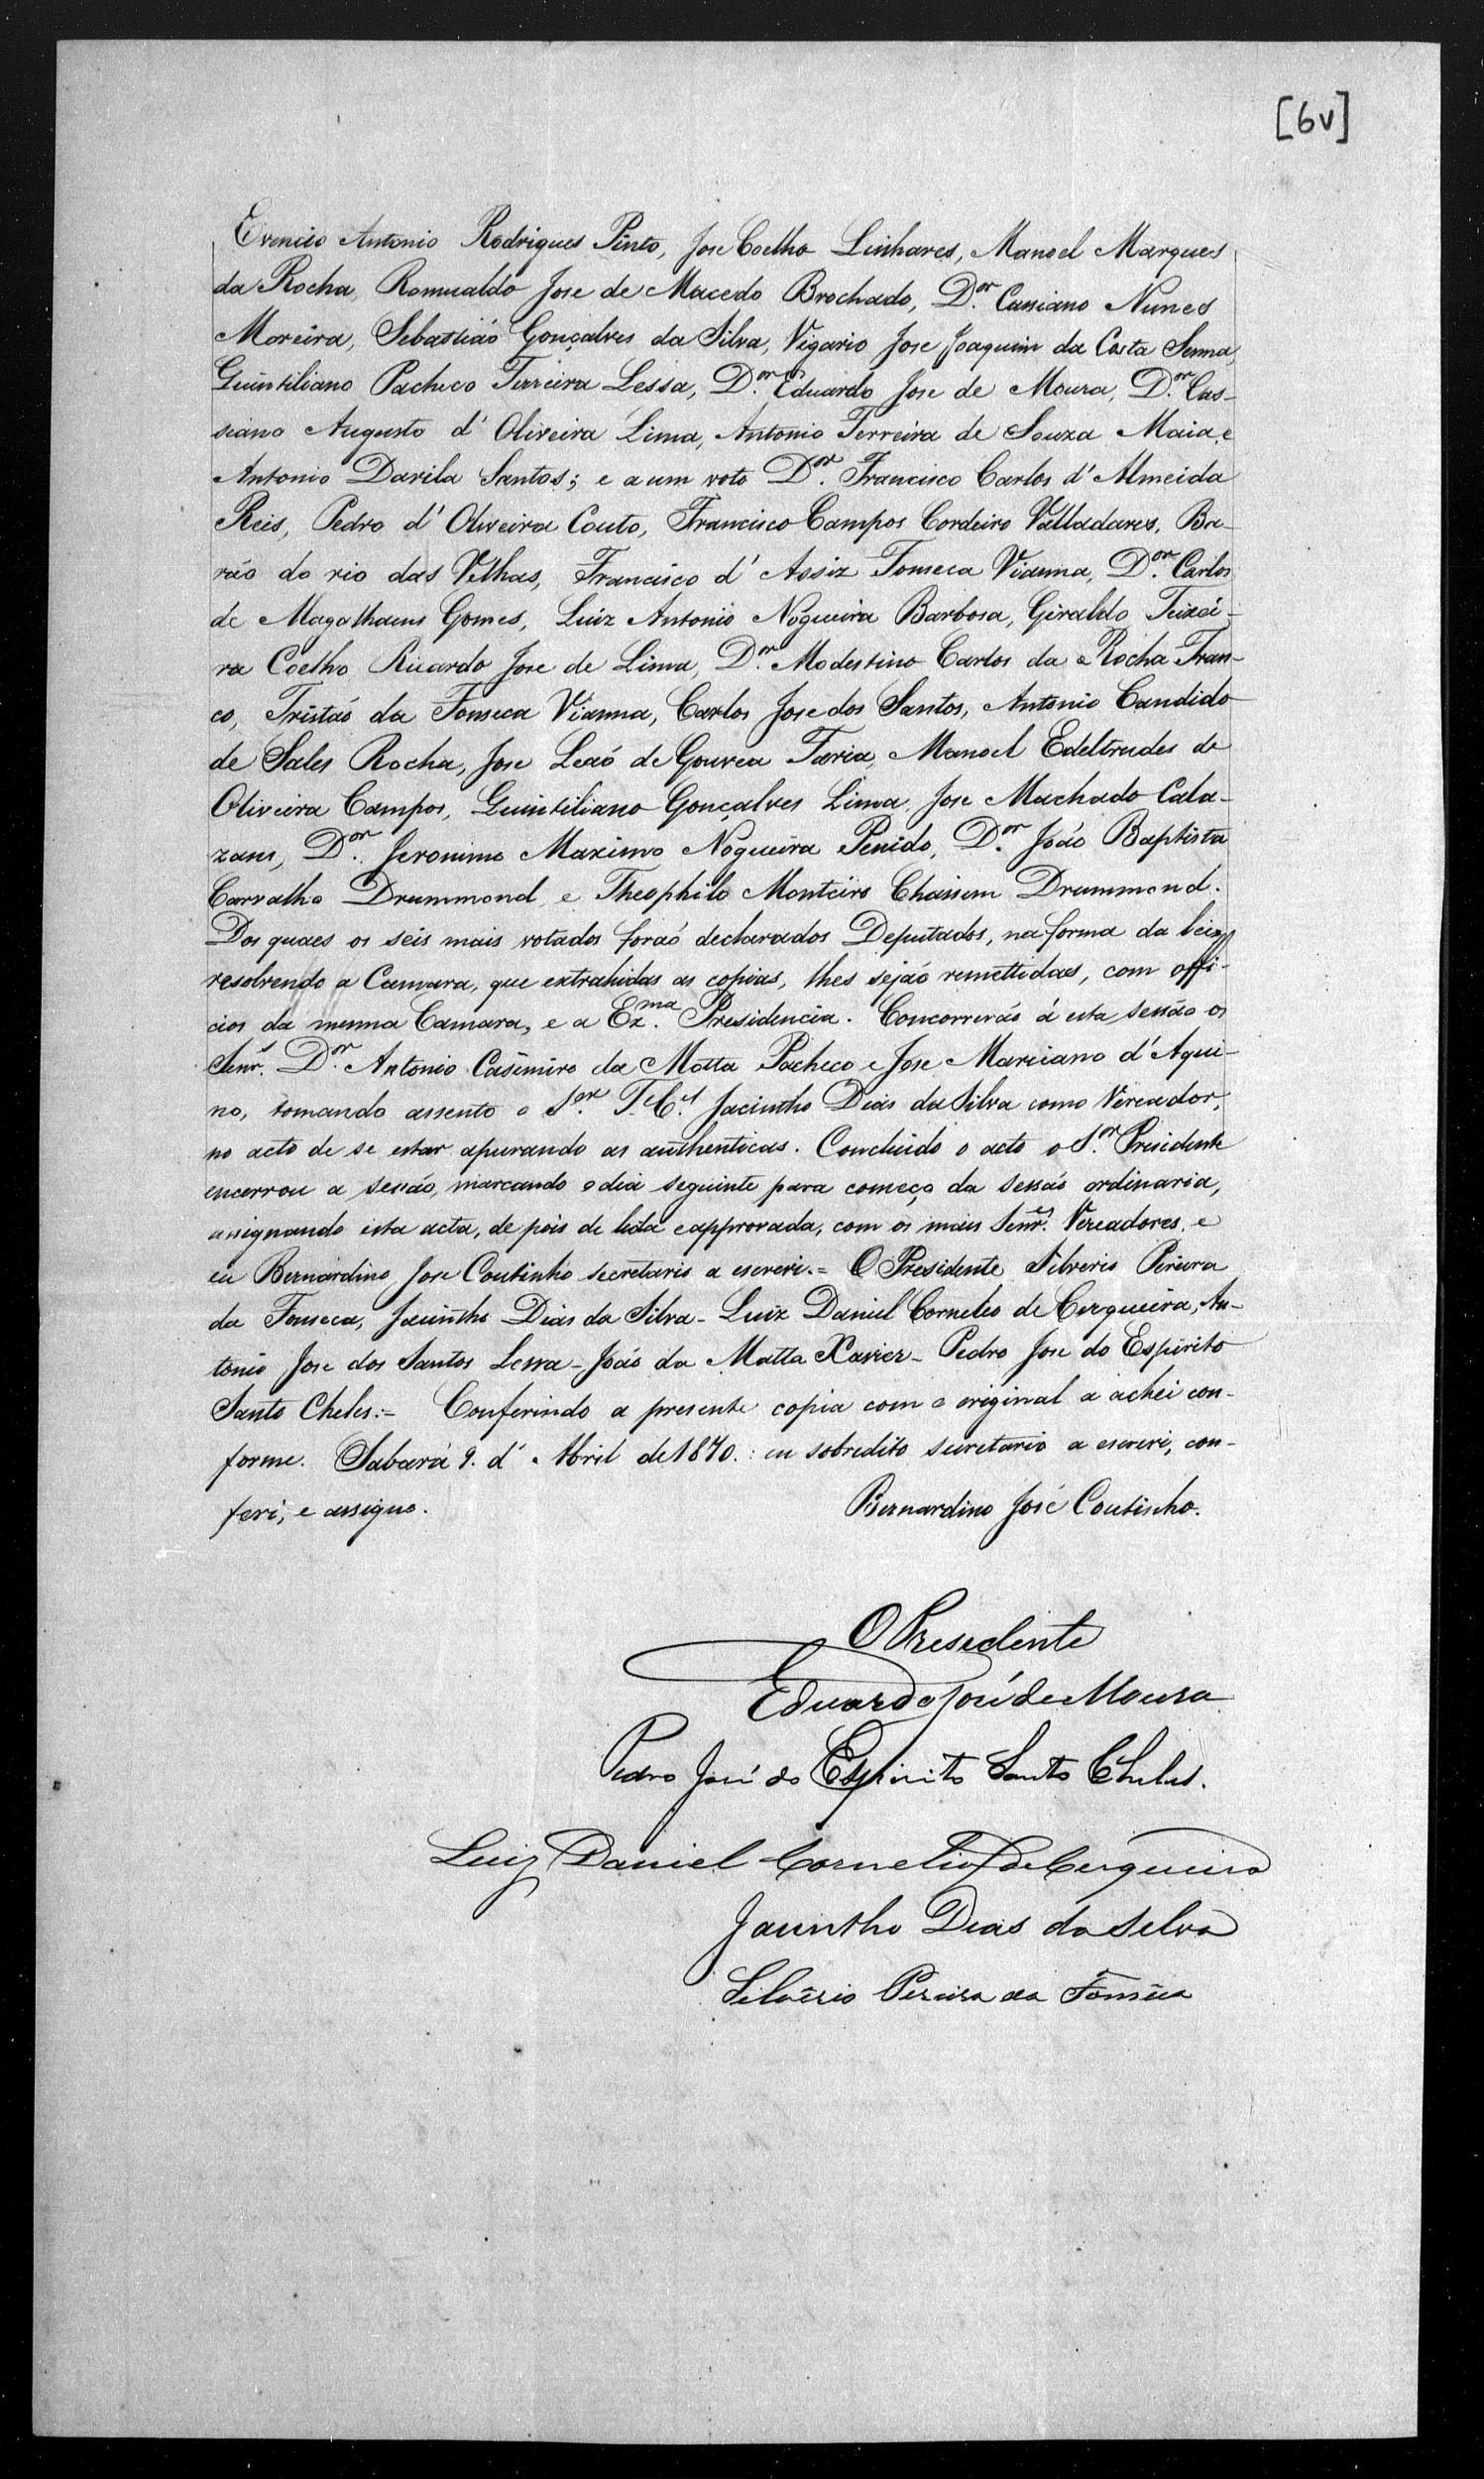 [6v]
Evencio Antonio Rodrigues Pinto, Jose Coelho Linhares, Manoel Marques
da Rocha, Romualdo Jose de Macedo Brochado, D.or Cassiano Nunes
Moreira, Sebastião Gonçalves da Silva, Vigario Jose Joaquim da Costa Senna,
Quintiliano Pacheco Ferreira Lessa, D.or Eduardo Jose de Moura, D.or Cas-
siano Augusto d'Oliveira Lima, Antonio Ferreira de Souza Maia, e
Antonio Davila Santos; e a um voto D.or Francisco Carlos d'Almeida
Reis, Pedro d'Oliveira Couto, Francisco Campos Cordeiro Valladares, Ba-
rão do rio das Velhas, Francisco d'Assiz Fonseca Vianna, D.or Carlos
de Magalhaens Gomes, Luiz Antonio Nogueira Barbosa, Geraldo Teixei-
ra Coelho Ricardo Jose de Lima, D.or Modestino Carlos da Rocha Fran-
co, Tristaõ da Fonseca Vianna, Carlos Jose dos Santos, Antonio Candido
de Sales Rocha, Jose Leaõ de Gouvea Faria, Manoel Edeltrudes de
Oliveira Campos, Quintiliano Gonçalves Lima, Jose Machado Cala-
zans, D.or Jeronimo Maximo Nogueira Penido, D.or João Baptista
Carvalho Drummond, e Theophilo Monteiro Chassim Drummond.
Dos quaes os seis mais votados foraõ declarados Deputados, na forma da lei,
resolvendo a Camara, que extrahidas as copias, lhes sejaõ remettidas, com offi-
cios da mesma Camara, e a Ex.ma Presidencia. Concorrerão á esta sessão os
Senr.s D.or Antonio Casimiro da Motta Pacheco e Jose Marciano d'Aqui-
no, tomando assento o S.or T.e C.el Jacintho Dias da Silva como Vereador,
no acto de se estar apurando as authenticas. Concluido o acto o S.or Presidente
encerrou a sessão, marcando o dia seguinte para começo da sessaõ ordinaria,
assignando esta acta, de pois de lida e approvada, com os mais Senr.es Vereadores, e
eu Bernardino Jose Coutinho secretario a escrevi.= O Presidente Silverio Pereira
da Fonseca, Jacintho Dias da Silva - Luiz Daniel Cornelio de Cerqueira, An-
tonio Jose dos Santos Lessa - João da Matta Xavier - Pedro Jose do Espirito
Santo Cheles:- Conferindo a presente copia com o original a achei con-
forme. Sabará 9. d'Abril de 1870.: eu sobredito secretario a escrevi, con-
feri, e assigno. Bernardino José Coutinho.
O Presedente
Eduardo José de Moura
Pedro José do Espirito Santo Cheles.
Luiz Daniel Cornelio de Cerqueira
Jacintho Dias da Silva
Silvério Pereira da Fonseca